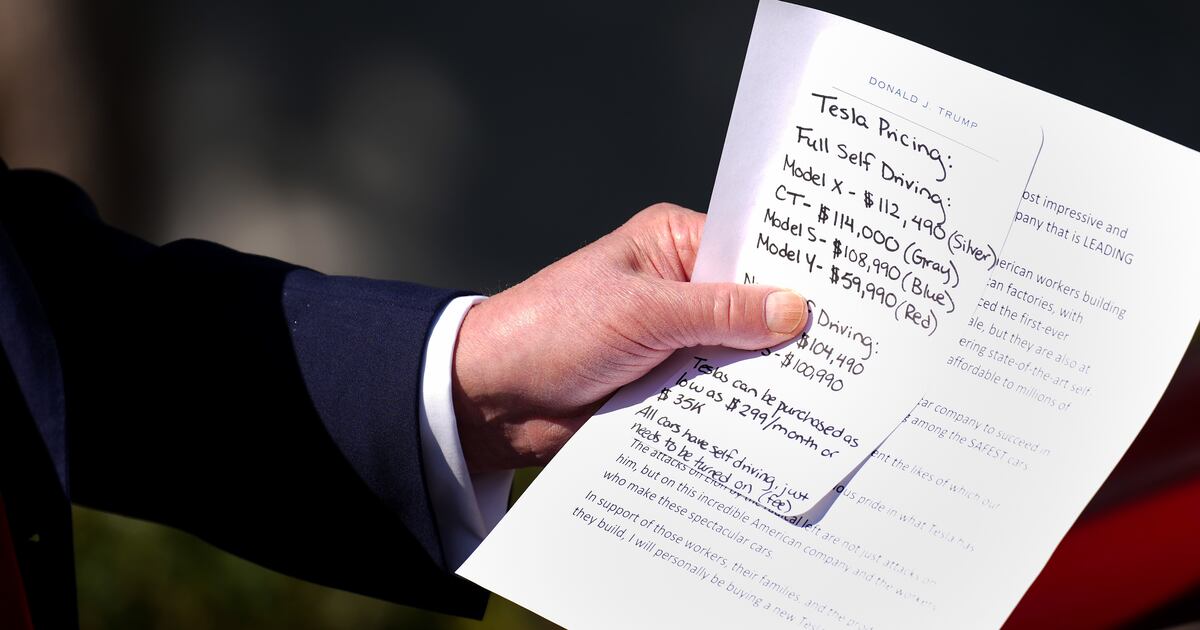 DONALD J. TRUMP
Tesla Pricing:
Full Self Driving:
Model X - $112,490 (Silver)
CT - $114,000 (Gray)
Model S - $108,990 (Blue)
Model Y - $59,990 (Red)
Driving:
$104,490
S - $100,990
Teslas can be purchased as
low as $299/month or
$35K
All cars have self driving, just
needs to be turned on (fee)
ost impressive and
pany that is LEADING
erican workers building
an factories, with
ced the first-ever
ale, but they are also at
ering state-of-the-art self-
affordable to millions of
ar company to succeed in
among the SAFEST cars
ent the likes of which our
ous pride in what Tesla has
The attacks on Elon by the radical left are not just attacks on
him, but on this incredible American company and the workers
who make these spectacular cars.
In support of those workers, their families, and the
they build, I will personally be buying a new